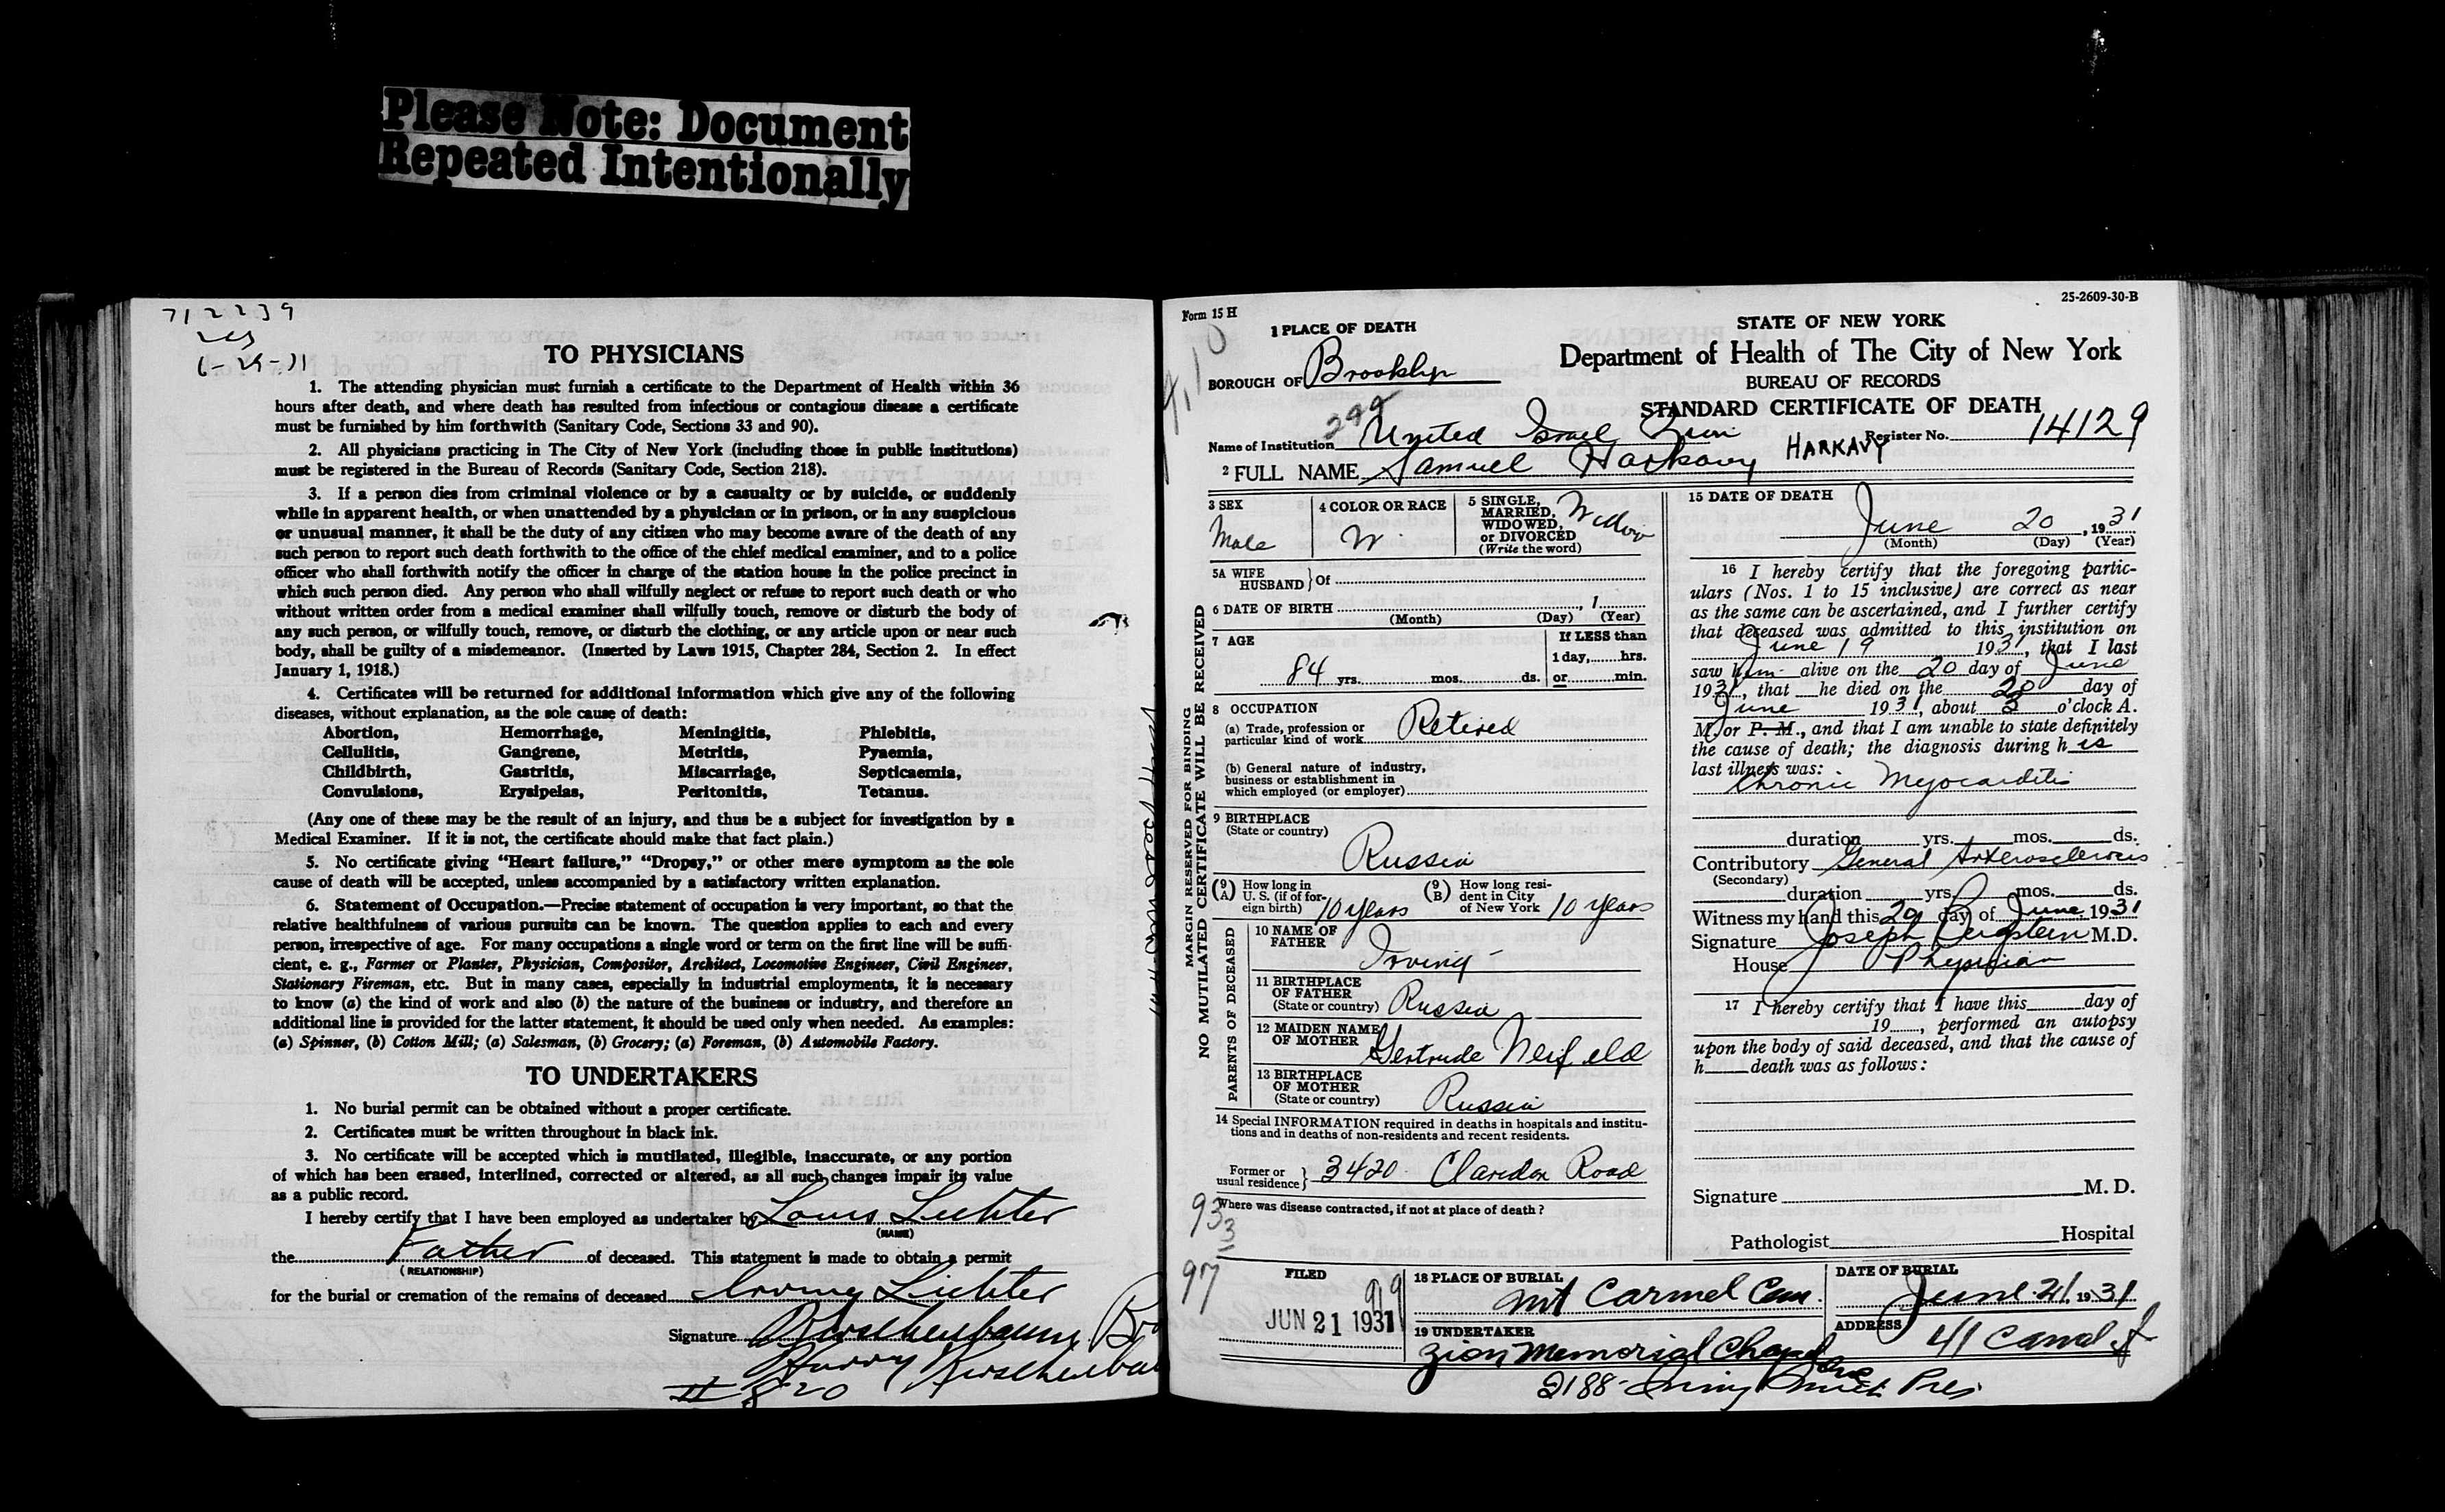 Please Note: Document
Repeated Intentionally
712239
TO PHYSICIANS
1. The attending physician must furnish a certificate to the Department of Health within 36
hours after death, and where death has resulted from infectious or contagious disease a certificate
must be furnished by him forthwith (Sanitary Code, Sections 33 and 90).
2. All physicians practicing in The City of New York (including those in public institutions)
must be registered in the Bureau of Records (Sanitary Code, Section 218).
3. If a person dies from criminal violence or by a casualty or by suicide, or suddenly
while in apparent health, or when unattended by a physician or in prison, or in any suspicious
or unusual manner, it shall be the duty of any citizen who may become aware of the death of any
such person to report such death forthwith to the office of the chief medical examiner, and to a police
officer who shall forthwith notify the officer in charge of the station house in the police precinct in
which such person died. Any person who shall wilfully neglect or refuse to report such death or who
without written order from a medical examiner shall wilfully touch, remove or disturb the body of
any such person, or wilfully touch, remove, or disturb the clothing, or any article upon or near such
body, shall be guilty of a misdemeanor. (Inserted by Laws 1915, Chapter 284, Section 2. In effect
January 1, 1918.)
4. Certificates will be returned for additional information which give any of the following
diseases, without explanation, as the sole cause of death:
Abortion, Hemorrhage, Meningitis, Phlebitis,
Cellulitis, Gangrene, Metritis, Pyaemia,
Childbirth, Gastritis, Miscarriage, Septicaemia,
Convulsions, Erysipelas, Peritonitis, Tetanus.
(Any one of these may be the result of an injury, and thus be a subject for investigation by a
Medical Examiner. If it is not, the certificate should make that fact plain.)
5. No certificate giving "Heart failure," "Dropsy," or other mere symptom as the sole
cause of death will be accepted, unless accompanied by a satisfactory written explanation.
6. Statement of Occupation.—Precise statement of occupation is very important, so that the
relative healthfulness of various pursuits can be known. The question applies to each and every
person, irrespective of age. For many occupations a single word or term on the first line will be suffi-
cient, e. g., Farmer or Planter, Physician, Compositor, Architect, Locomotive Engineer, Civil Engineer,
Stationary Fireman, etc. But in many cases, especially in industrial employments, it is necessary
to know (a) the kind of work and also (b) the nature of the business or industry, and therefore an
additional line is provided for the latter statement, it should be used only when needed. As examples:
(a) Spinner, (b) Cotton Mill; (a) Salesman, (b) Grocery; (a) Foreman, (b) Automobile Factory.
TO UNDERTAKERS
1. No burial permit can be obtained without a proper certificate.
2. Certificates must be written throughout in black ink.
3. No certificate will be accepted which is mutilated, illegible, inaccurate, or any portion
of which has been erased, interlined, corrected or altered, as all such changes impair its value
as a public record.
I hereby certify that I have been employed as undertaker by Louis Lichter
(NAME)
the Father of deceased. This statement is made to obtain a permit
(RELATIONSHIP)
for the burial or cremation of the remains of deceased Irving Lichter
Signature Kirschenbaum
Harry Kirschenbau
820
Form 15 H
25-2609-30-B
1 PLACE OF DEATH
BOROUGH OF Brooklyn
STATE OF NEW YORK
Department of Health of The City of New York
BUREAU OF RECORDS
STANDARD CERTIFICATE OF DEATH
299
Name of Institution United Israel Zion
Register No. 14129
2 FULL NAME Samuel Harkavy HARKAVY
MARGIN RESERVED FOR BINDING
NO MUTILATED CERTIFICATE WILL BE RECEIVED
3 SEX
Male
4 COLOR OR RACE
W
5 SINGLE,
MARRIED,
WIDOWED,
or DIVORCED
(Write the word)
5A WIFE
HUSBAND } Of
6 DATE OF BIRTH , 1
(Month) (Day) (Year)
7 AGE
84 yrs. mos. ds.
If LESS than
1 day, hrs.
or min.
8 OCCUPATION
(a) Trade, profession or
particular kind of work Retired
(b) General nature of industry,
business or establishment in
which employed (or employer)
9 BIRTHPLACE
(State or country)
Russia
(9A) How long in
U. S. (if of for-
eign birth) 10 years
(9B) How long resi-
dent in City
of New York 10 years
PARENTS OF DECEASED
10 NAME OF
FATHER Irving
11 BIRTHPLACE
OF FATHER
(State or country) Russia
12 MAIDEN NAME
OF MOTHER Gertrude Neifeld
13 BIRTHPLACE
OF MOTHER
(State or country) Russia
14 Special INFORMATION required in deaths in hospitals and institu-
tions and in deaths of non-residents and recent residents.
Former or
usual residence } 3420 Claredon Road
Where was disease contracted, if not at place of death?
93
3
97
15 DATE OF DEATH
June 20, 1931
(Month) (Day) (Year)
16 I hereby certify that the foregoing partic-
ulars (Nos. 1 to 15 inclusive) are correct as near
as the same can be ascertained, and I further certify
that deceased was admitted to this institution on
June 19 1931, that I last
saw him alive on the 20 day of June
1931, that he died on the 20 day of
June 1931, about 3 o'clock A.
M. or P. M., and that I am unable to state definitely
the cause of death; the diagnosis during his
last illness was:
Chronic Myocarditis
duration yrs. mos. ds.
Contributory General Arterosclerosis
(Secondary)
duration yrs. mos. ds.
Witness my hand this 20 day of June, 1931
Signature Joseph Bergstein M.D.
House Physician
17 I hereby certify that I have this day of
19 , performed an autopsy
upon the body of said deceased, and that the cause of
h death was as follows:
Signature M. D.
Pathologist Hospital
FILED
JUN 21 1931
18 PLACE OF BURIAL
Mt Carmel Cem.
DATE OF BURIAL
June 21, 1931
19 UNDERTAKER
Zion Memorial Chapel Inc
ADDRESS 41 Canal St
2188 Pres